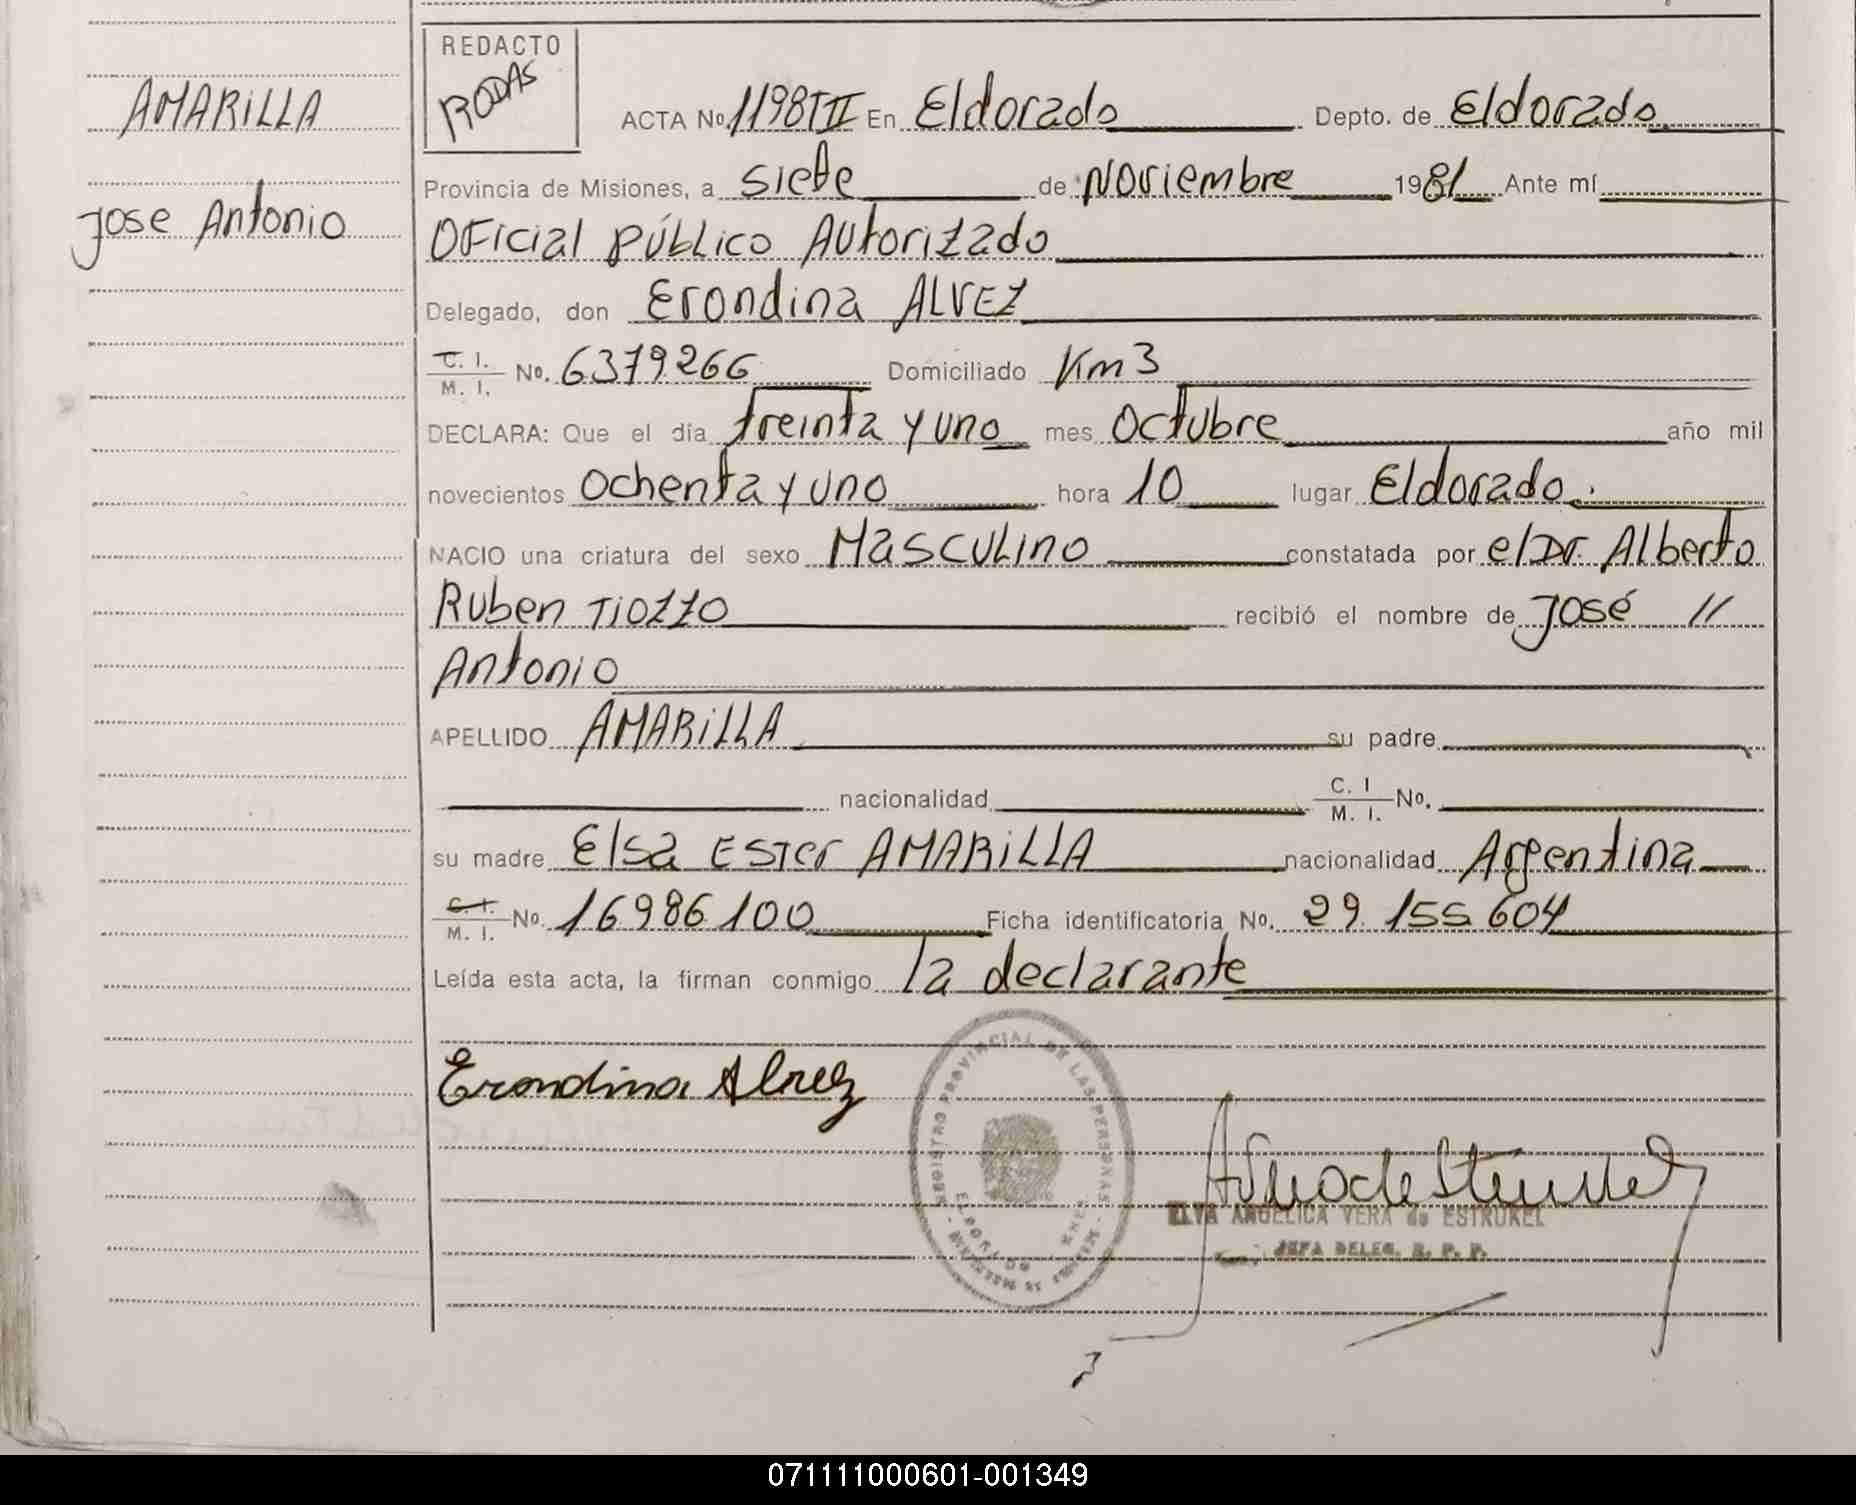 REDACTO
RODAS
AMARILLA
Jose Antonio
ACTA No. 1198 TII En Eldorado Depto. de Eldorado
Provincia de Misiones, a siete de Noviembre 1981 Ante mí
Oficial Público Autorizado
Delegado, don Erondina ALVEZ
C. I. / M. I. No. 6379266 Domiciliado Km 3
DECLARA: Que el día treinta y uno mes Octubre año mil
novecientos Ochenta y uno hora 10 lugar Eldorado.
NACIO una criatura del sexo Masculino constatada por el Dr. Alberto
Ruben TIOZZO recibió el nombre de José //
Antonio
APELLIDO AMARILLA su padre
nacionalidad C. I / M. I. No.
su madre Elsa Ester AMARILLA nacionalidad Argentina
C. I. / M. I. No. 16986100 Ficha identificatoria No. 29.155.604
Leída esta acta, la firman conmigo la declarante
Erondina Alvez
REGISTRO PROVINCIAL DE LAS PERSONAS
ELDORADO
ELVA ANGELICA VERA de ESTRUKEL
JEFA DELEG. R. P. P.
071111000601-001349